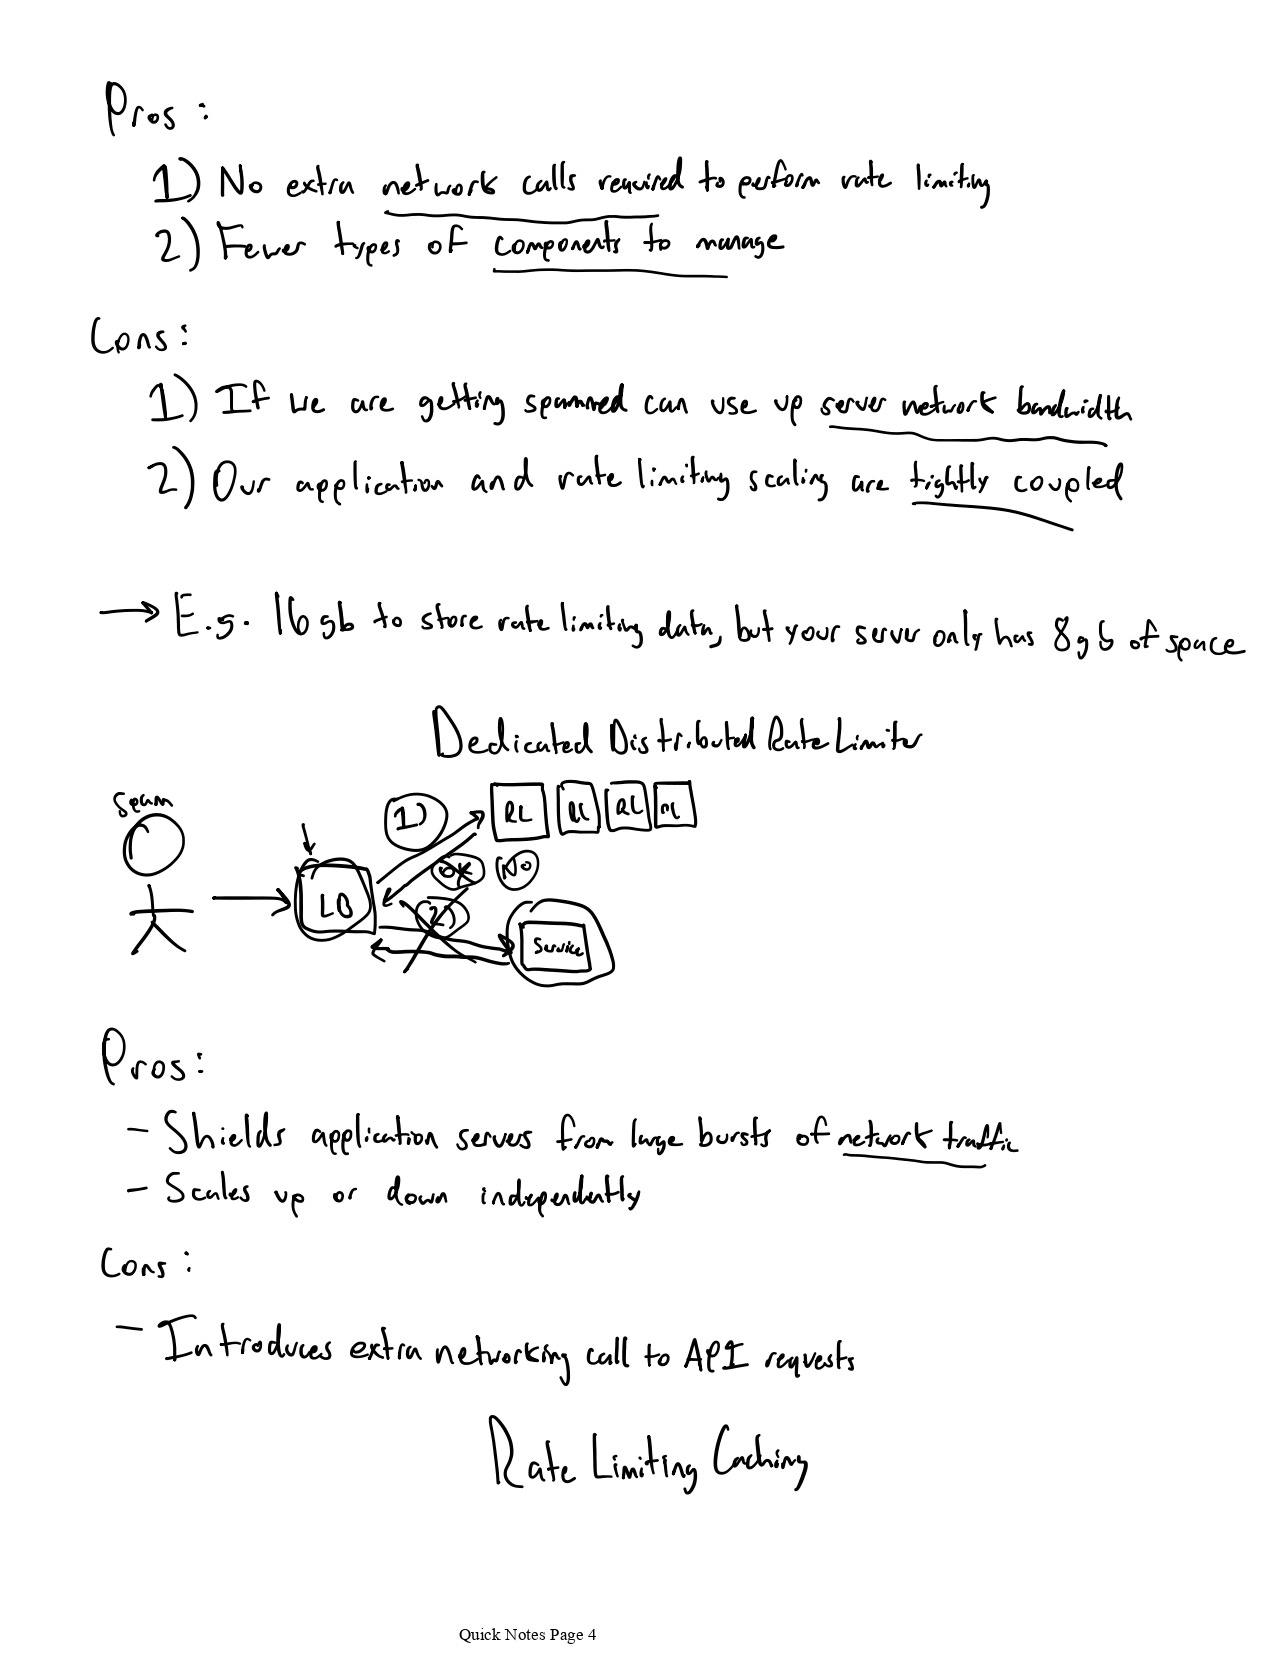 Pros:
1) No extra network calls required to perform rate limiting
2) Fewer types of components to manage
Cons:
1) If we are getting spammed can use up server network bandwidth
2) Our application and rate limiting scaling are tightly coupled
→ E.g. 16gb to store rate limiting data, but your server only has 8gb of space
Dedicated Distributed Rate Limiter
Spam
1)
RL RL RL RL
OK NO
LB
2)
Service
Pros:
- Shields application servers from large bursts of network traffic
- Scales up or down independently
Cons:
- Introduces extra networking call to API requests
Rate Limiting Caching
Quick Notes Page 4